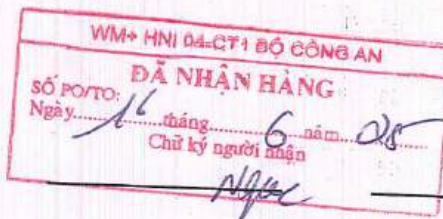 WM+ HNI 04-CT1 BỘ CÔNG AN
ĐÃ NHẬN HÀNG
SỐ PO/TO:
Ngày 16 tháng 6 năm 25
Chữ ký người nhận
Ngọc